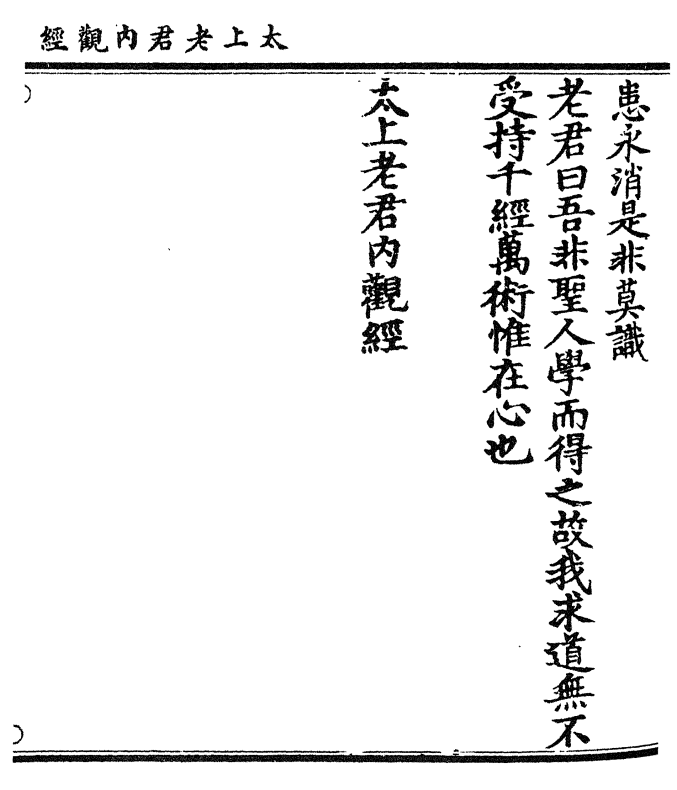 太上老君内觀經
患永消是非莫識
老君曰吾非聖人學而得之故我求道無不
受持千經萬術惟在心也
太上老君内觀經